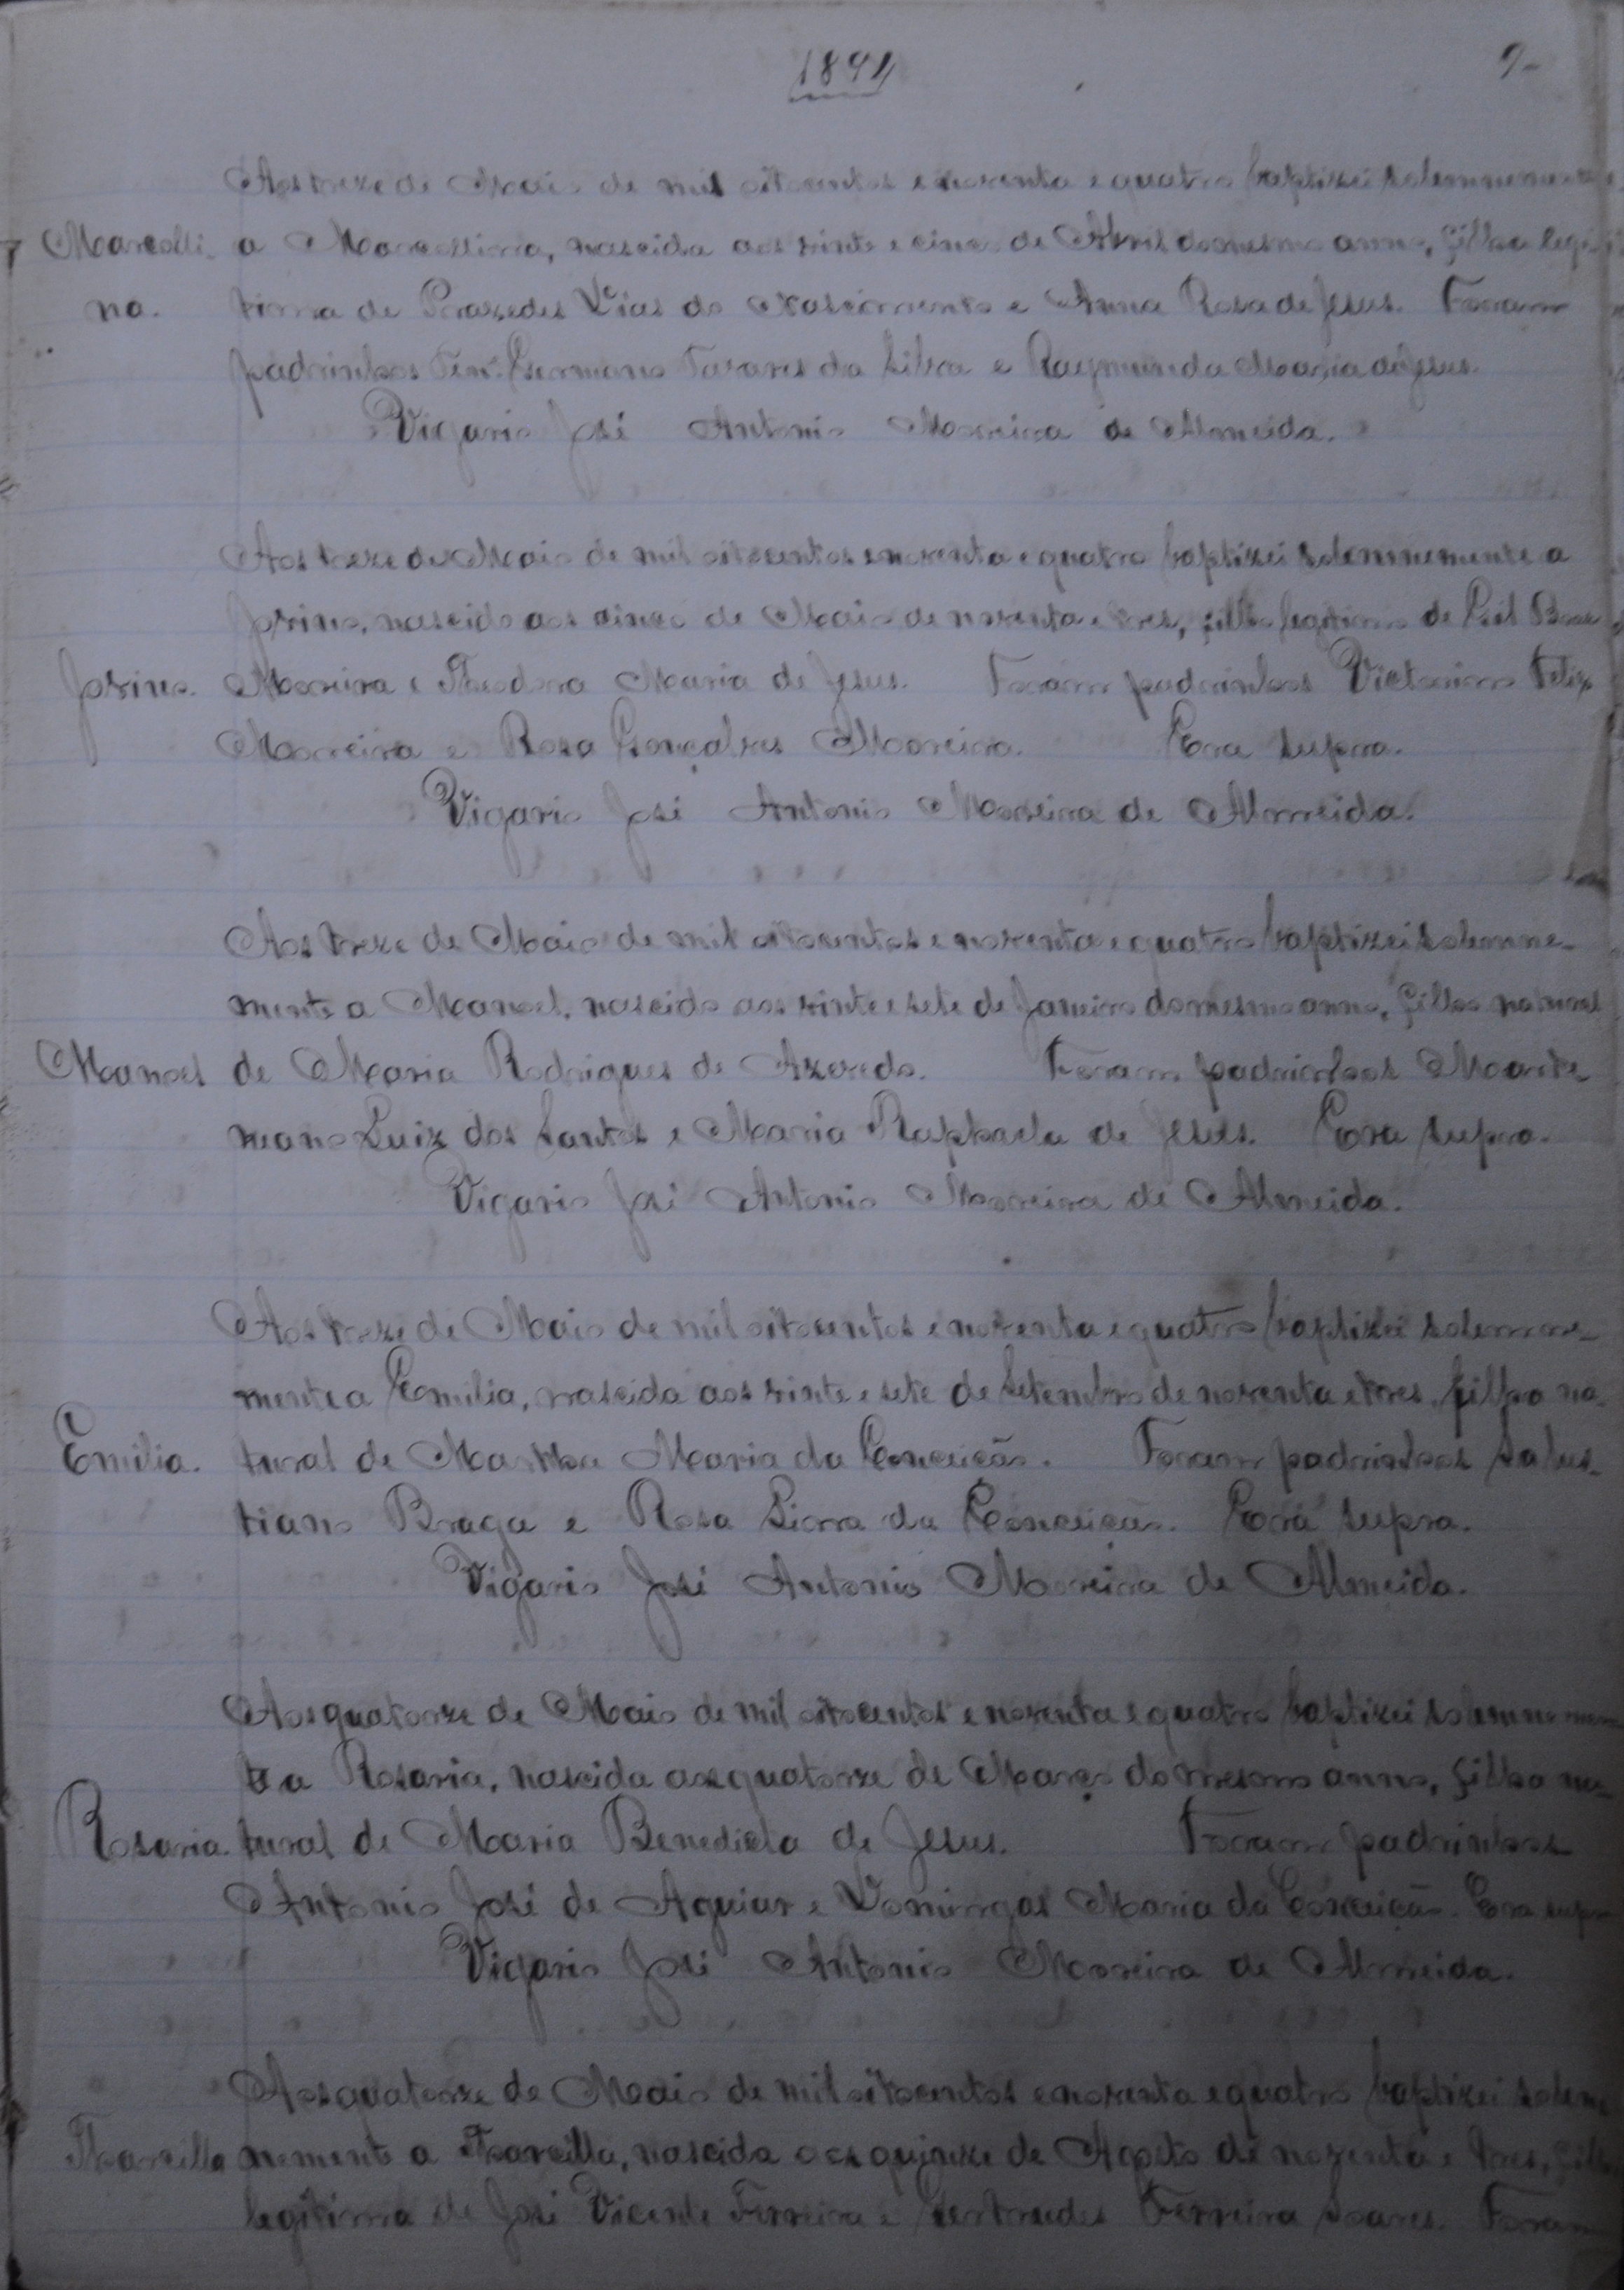 1894
9
Aos treze de Maio de mil oitocentos e noventa e quatro baptizei solemnemente
Marcelli- a Marcellina, nascida aos vinte e cinco de Abril do mesmo anno, filha legi-
na. tima de Praxedes Dias do Nascimento e Anna Rosa de Jesus. Foram
padrinhos Germano Tavares da Silva e Raymunda Maria de Jesus.
Vigario José Antonio Moreira de Almeida.
Aos treze de Maio de mil oitocentos e noventa e quatro baptizei solemnemente a
Jovino, nascido aos cinco de Maio de noventa e tres, filho legitimo de Gil
Jovino. Moreira e Theodora Maria de Jesus. Foram padrinhos Victorino Felix
Moreira e Rosa Gonçalves Moreira. Era supra.
Vigario José Antonio Moreira de Almeida.
Aos treze de Maio de mil oitocentos e noventa e quatro baptizei solemne-
mente a Manoel, nascido aos vinte e sete de Janeiro do mesmo anno, filho natural
Manoel de Maria Rodrigues de Azevedo. Foram padrinhos
Luiz dos Santos e Maria Raphaela de Jesus. Era supra.
Vigario José Antonio Moreira de Almeida.
Aos treze de Maio de mil oitocentos e noventa e quatro baptizei solemne-
mente a Emilia, nascida aos vinte e sete de Setembro de noventa e tres, filha na-
Emilia. tural de Martha Maria da Conceição. Foram padrinhos Salus-
tiano Braga e Rosa da Conceição. Era supra.
Vigario José Antonio Moreira de Almeida.
Aos quatorze de Maio de mil oitocentos e noventa e quatro baptizei solemnemen-
te a Rosaria, nascida aos quatorze de Março do mesmo anno, filha na-
Rosaria. tural de Maria Benedicta de Jesus. Foram padrinhos
Antonio José de Aguiar e Domingas Maria da Conceição. Era supra
Vigario José Antonio Moreira de Almeida.
Aos quatorze de Maio de mil oitocentos e noventa e quatro baptizei solem-
Tharcilla nemente a Tharcilla, nascida aos quinze de Agosto de noventa e tres, filha
legitima de José Vicente Ferreira e Gertrudes Ferreira Soares. Foram